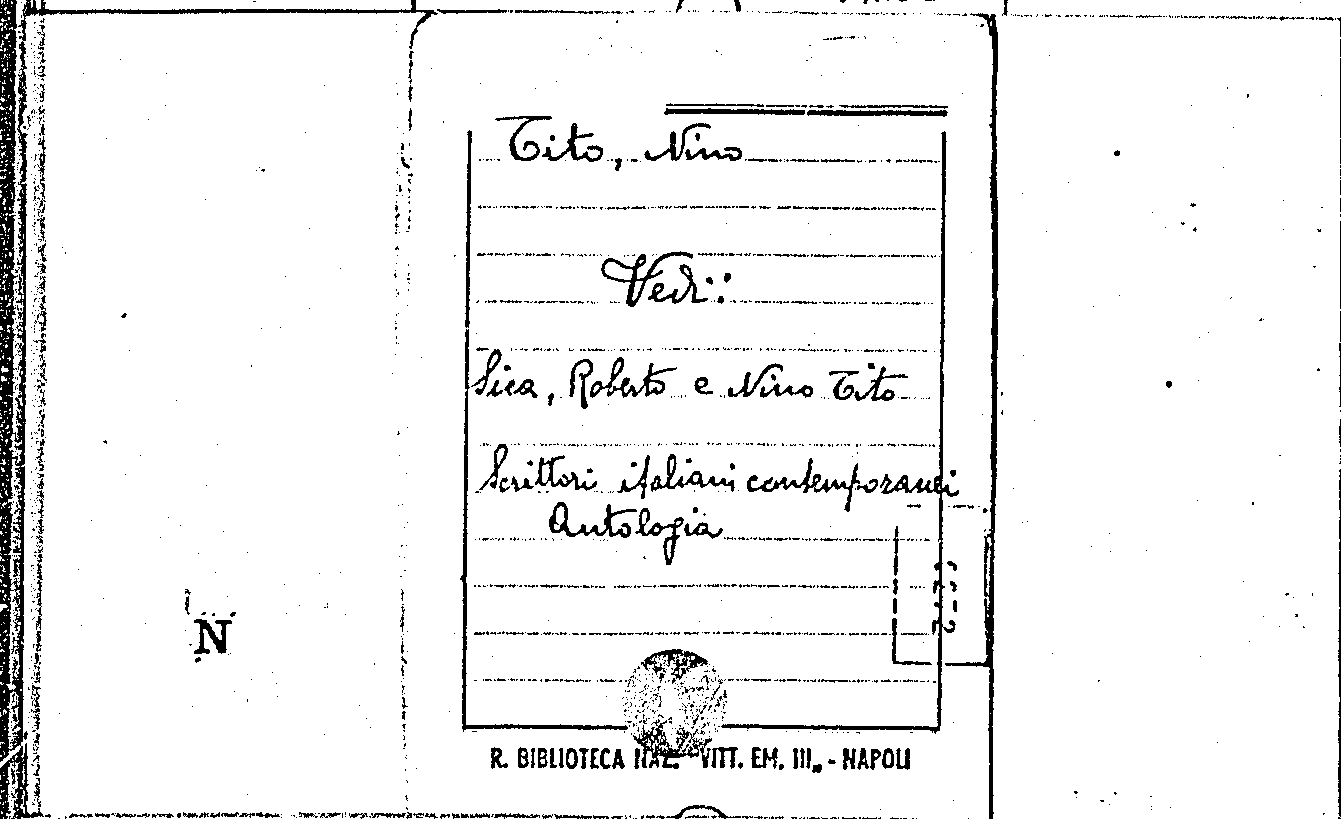 Tito, Nino
Vedi:
Sica, Roberto e Nino Tito
Scrittori italiani contemporanei
Antologia
N
R. BIBLIOTECA NAZ. "VITT. EM. III„ - NAPOLI